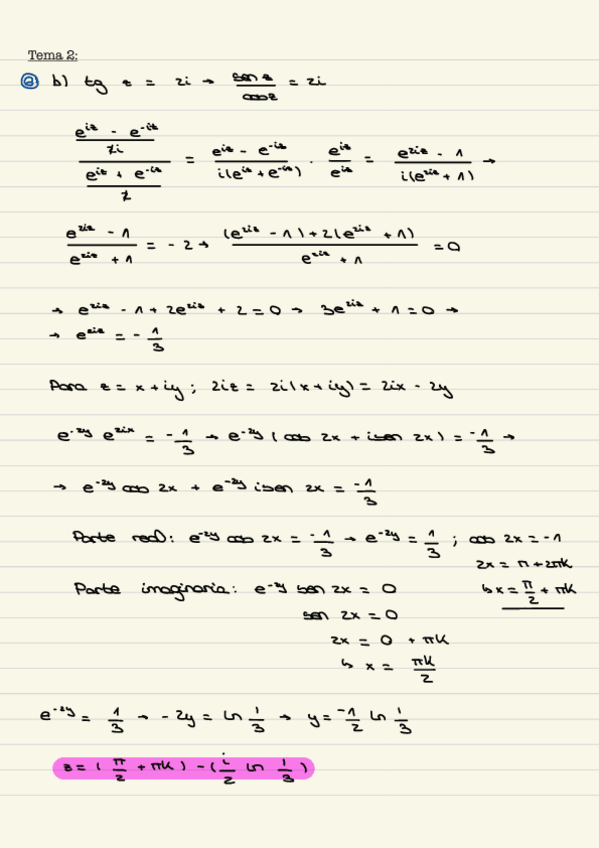 Tema 2:
② b) tg z = 2i → sen z / cos z = 2i
((e^{iz} - e^{-iz}) / 2i) / ((e^{iz} + e^{-iz}) / 2) = (e^{iz} - e^{-iz}) / (i(e^{iz} + e^{-iz})) · e^{iz} / e^{iz} = (e^{2iz} - 1) / (i(e^{2iz} + 1)) →
(e^{2iz} - 1) / (e^{2iz} + 1) = -2 → ((e^{2iz} - 1) + 2(e^{2iz} + 1)) / (e^{2iz} + 1) = 0
→ e^{2iz} - 1 + 2e^{2iz} + 2 = 0 → 3e^{2iz} + 1 = 0 →
→ e^{2iz} = - 1/3
Para z = x + iy ; 2iz = 2i(x + iy) = 2ix - 2y
e^{-2y} e^{2ix} = -1/3 → e^{-2y} (cos 2x + i sen 2x) = -1/3 →
→ e^{-2y} cos 2x + e^{-2y} i sen 2x = -1/3
Parte real: e^{-2y} cos 2x = -1/3 → e^{-2y} = 1/3 ; cos 2x = -1
2x = π + 2πk
↳ x = π/2 + πk
Parte imaginaria: e^{-2y} sen 2x = 0
sen 2x = 0
2x = 0 + πk
↳ x = πk/2
e^{-2y} = 1/3 → -2y = ln 1/3 → y = -1/2 ln 1/3
z = ( π/2 + πk ) - ( i/2 ln 1/3 )